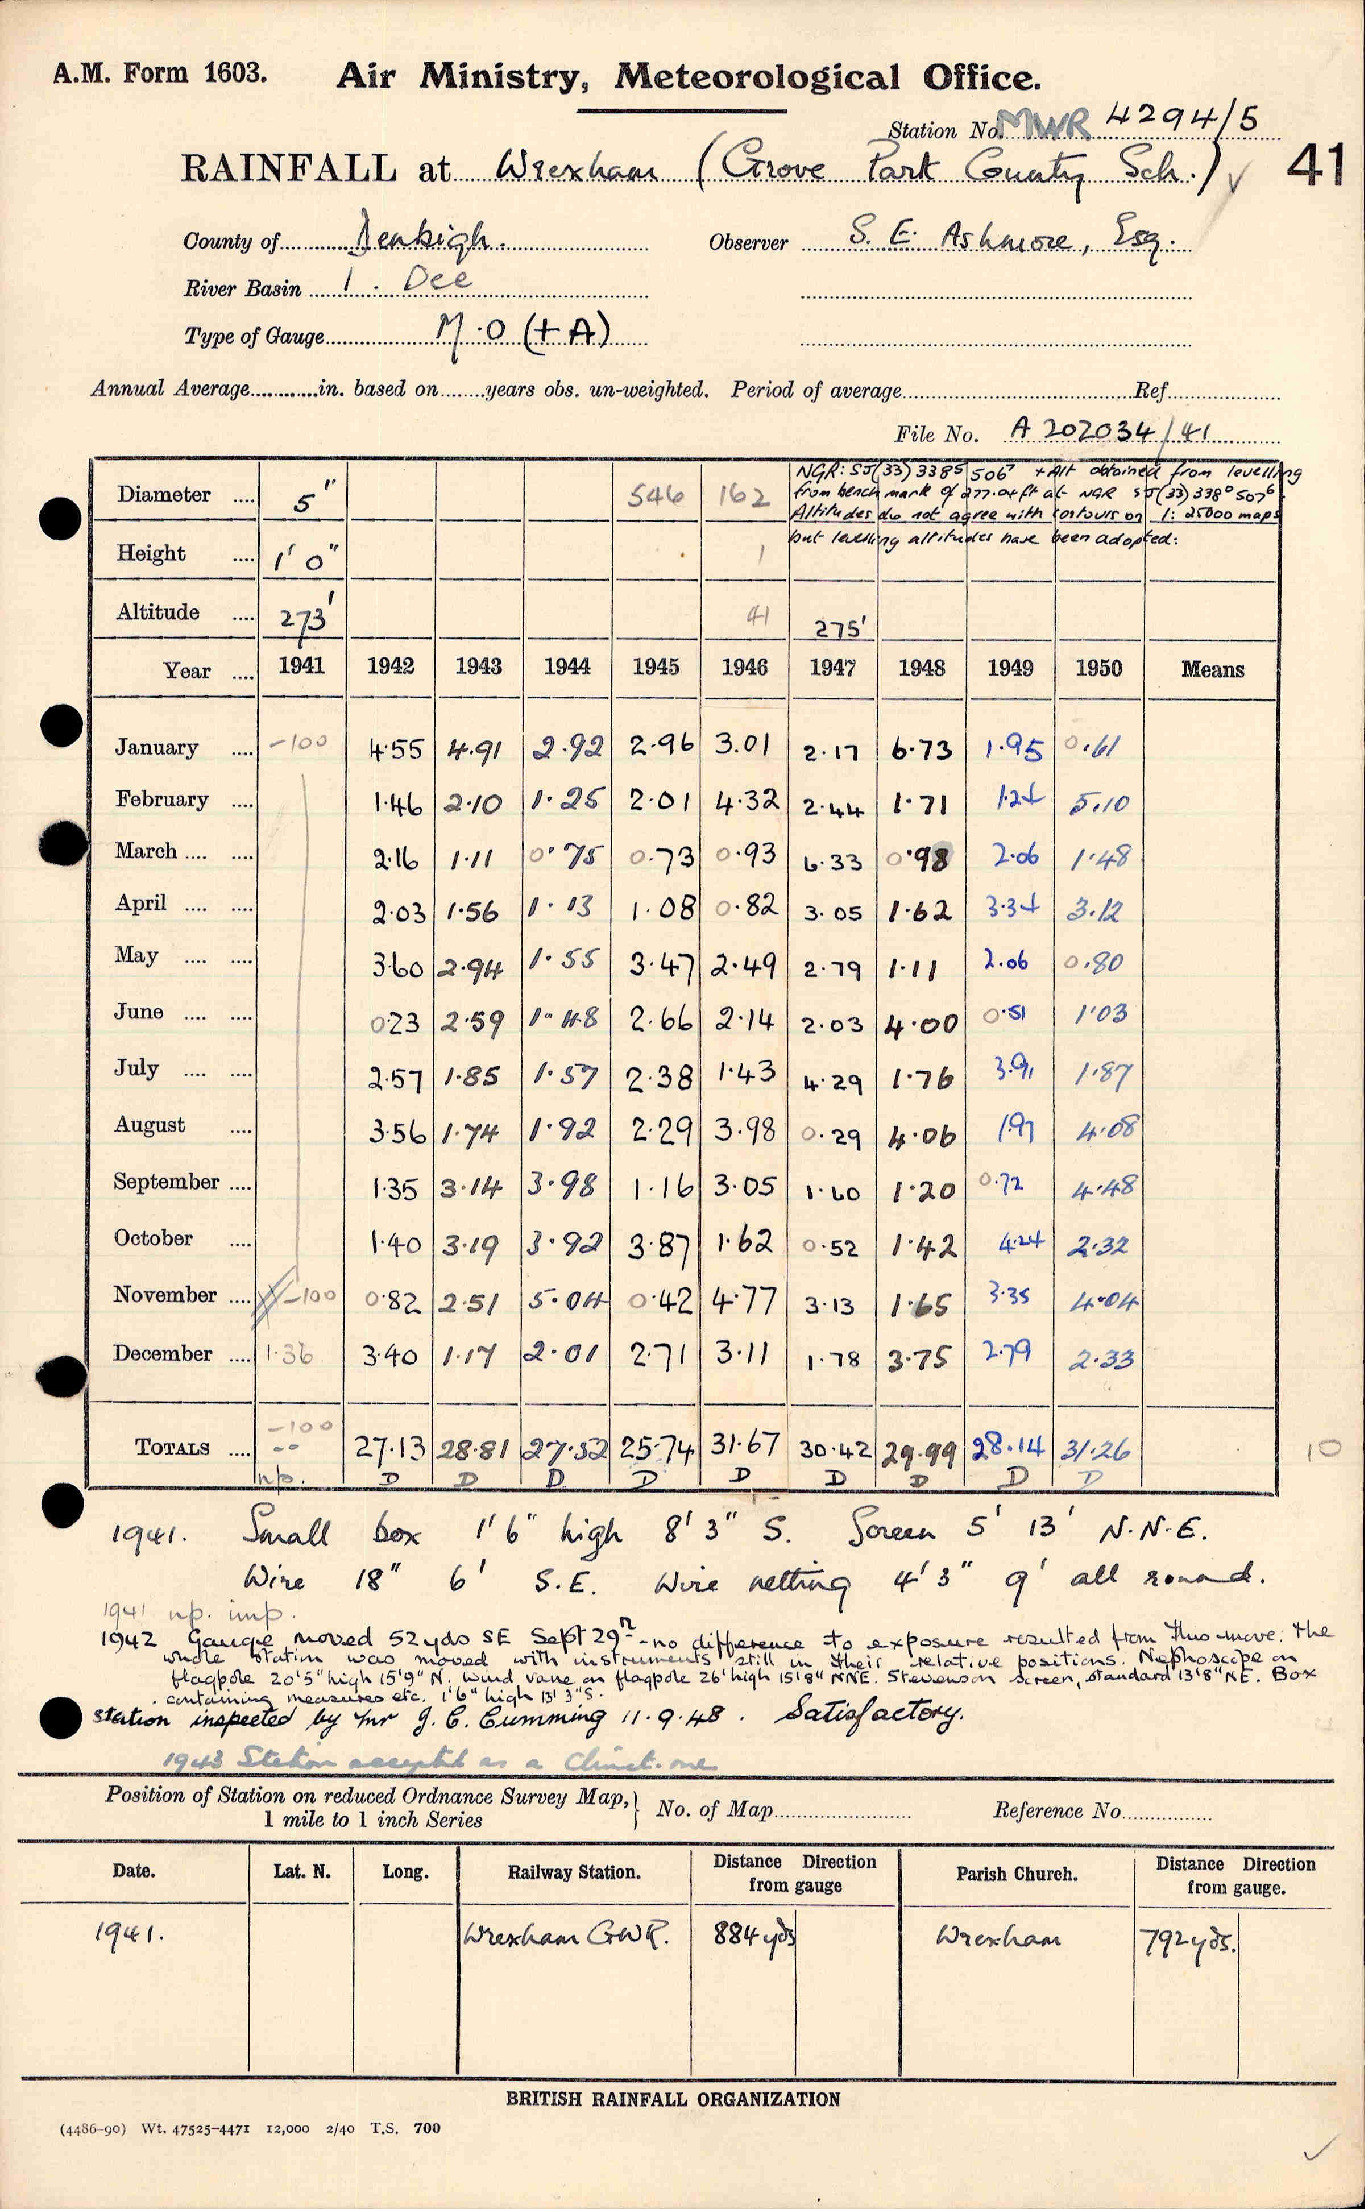 A.M. Form 1603. Air Ministry, Meteorological Office.
Station No. MWR 4294/5
RAINFALL at Wrexham (Grove Park County Sch.) 41
County of Denbigh. Observer S. E. Ashmore, Esq.
River Basin 1. Dee
Type of Gauge M.O (+ A)
Annual Average in. based on years obs. un-weighted. Period of average Ref.
File No. A 202034/41
NGR: SJ(33) 3385 5067 + Alt obtained from levelling
from bench mark of 277.04 ft at NGR SJ(33) 3380 5076.
Altitudes do not agree with contours on 1:25000 maps
but levelling altitudes have been adopted:
Diameter 5" 546 162
Height 1' 0" 1
Altitude 273' 41 275'
Year 1941 1942 1943 1944 1945 1946 1947 1948 1949 1950 Means
January -100 4.55 4.91 2.92 2.96 3.01 2.17 6.73 1.95 0.61
February 1.46 2.10 1.25 2.01 4.32 2.44 1.71 1.24 5.10
March 2.16 1.11 0.75 0.73 0.93 6.33 0.98 2.06 1.48
April 2.03 1.56 1.13 1.08 0.82 3.05 1.62 3.34 3.12
May 3.60 2.94 1.55 3.47 2.49 2.79 1.11 2.06 0.80
June 0.23 2.59 1.48 2.66 2.14 2.03 4.00 0.51 1.03
July 2.57 1.85 1.57 2.38 1.43 4.29 1.76 3.91 1.87
August 3.56 1.74 1.92 2.29 3.98 0.29 4.06 1.97 4.08
September 1.35 3.14 3.98 1.16 3.05 1.60 1.20 0.72 4.48
October 1.40 3.19 3.92 3.87 1.62 0.52 1.42 4.24 2.32
November -100 0.82 2.51 5.04 0.42 4.77 3.13 1.65 3.35 4.04
December 1.36 3.40 1.17 2.01 2.71 3.11 1.78 3.75 2.79 2.33
-100
TOTALS -- 27.13 28.81 27.52 25.74 31.67 30.42 29.99 28.14 31.26 10
n.p. D D D D D D D D D
1941. Small box 1' 6" high 8' 3" S. Screen 5' 13' N.N.E.
Wire 18" 6' S.E. Wire netting 4' 3" 9' all round.
1941 n.p. imp.
1942 Gauge moved 52 yds SE Sept 29th - no difference to exposure resulted from this move. The
whole station was moved with instruments still in their relative positions. Nephoscope on
flagpole 20'5" high 15'9" N. Wind vane on flagpole 26' high 15'8" NNE. Stevenson screen, standard 13'8" NE. Box
containing measures etc. 1'6" high 13' 3" S.
Station inspected by Mr J. C. Cumming 11.9.48. Satisfactory.
1943 Station accepted as a Climat. one
Position of Station on reduced Ordnance Survey Map, 1 mile to 1 inch Series } No. of Map Reference No.
Date. Lat. N. Long. Railway Station. Distance Direction from gauge Parish Church. Distance Direction from gauge.
1941. Wrexham GWR. 884 yds Wrexham 792 yds.
BRITISH RAINFALL ORGANIZATION
(4486-90) Wt. 47525-4471 12,000 2/40 T.S. 700